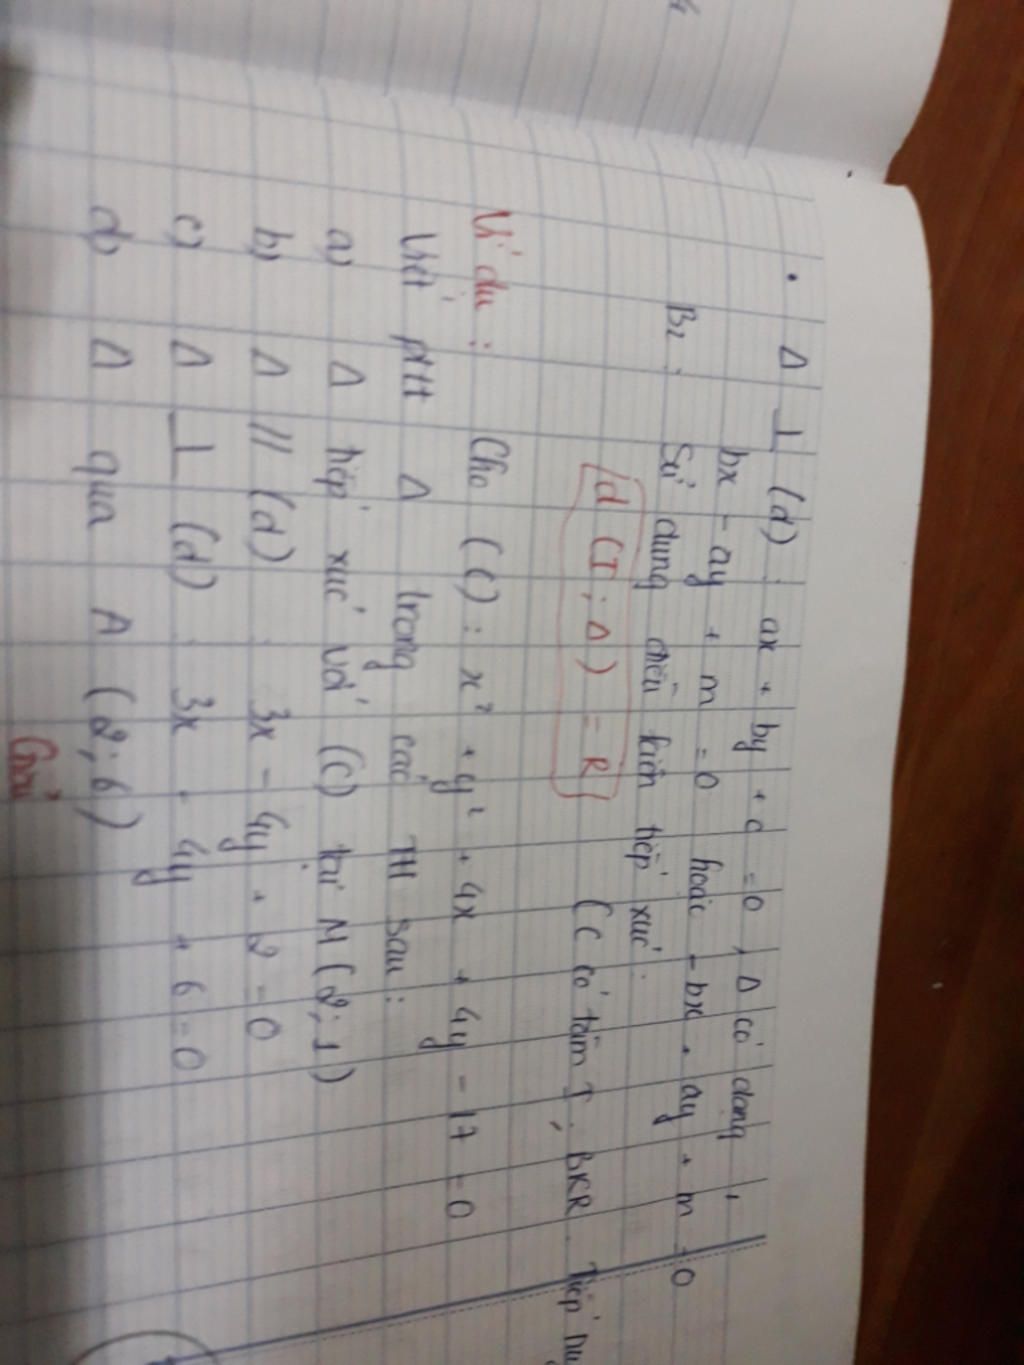 • Δ ⊥ (d): ax + by + c = 0, Δ có dạng
bx - ay + m = 0 hoặc -bx + ay + m = 0
B2: Sử dụng điều kiện tiếp xúc:
d (I; Δ) = R (C có tâm I, BKR. Tiếp
Ví dụ: Cho (C): x² + y² + 4x + 4y - 17 = 0
Viết ptđt Δ trong các TH sau:
a) Δ tiếp xúc với (C) tại M (2; 1)
b) Δ // (d) : 3x - 4y + 2 = 0
c) Δ ⊥ (d) : 3x - 4y + 6 = 0
d) Δ qua A (2; 6)
Giải